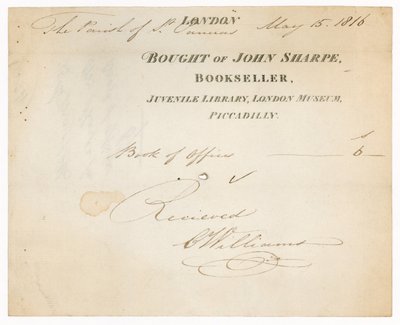 LONDON
The Parish of St. Pancras May 15. 1816
BOUGHT OF JOHN SHARPE,
BOOKSELLER,
JUVENILE LIBRARY, LONDON MUSEUM,
PICCADILLY.
s
Book of Offices 6
Recieved
C Williams